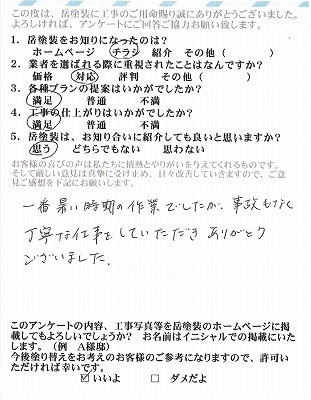 この度は、岳塗装に工事のご用命賜り誠にありがとうございました。
よろしければ、アンケートにご回答ご協力お願い致します。
1. 岳塗装をお知りになったのは？
ホームページ チラシ 紹介 その他（ ）
2. 業者を選ばれる際に重視されたことはなんですか？
価格 対応 評判 その他（ ）
3. 各種プランの提案はいかがでしたか？
満足 普通 不満
4. 工事の仕上がりはいかがでしたか？
満足 普通 不満
5. 岳塗装は、お知り合いに紹介しても良いと思いますか？
思う どちらでもない 思わない
お客様の喜びの声は私たちに情熱とやりがいを与えてくれるものです。
そして厳しい意見は真摯に受け止め、日々改善していきますので、ご意
見ご感想を下記にお願いします。
一番暑い時期の作業でしたが、事故もなく
丁寧な仕事をしていただき ありがとう
ございました。
このアンケートの内容、工事写真等を岳塗装のホームページに掲
載してもよろしいでしょうか？ お名前はイニシャルでの掲載にいた
します。（例 A様邸）
今後塗り替えをお考えのお客様のご参考になりますので、許可い
ただければ幸いです。
☑ いいよ □ ダメだよ